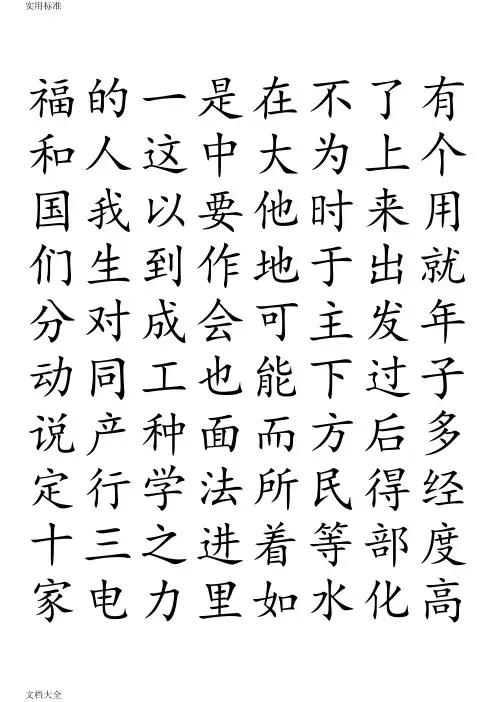 实用标准
福的一是在不了有
和人这中大为上个
国我以要他时来用
们生到作地于出就
分对成会可主发年
动同工也能下过子
说产种面而方后多
定行学法所民得经
十三之进着等部度
家电力里如水化高
文档大全